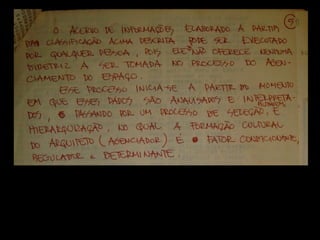 5
O ACERVO DE INFORMAÇÕES ELABORADO A PARTIR
DA CLASSIFICAÇÃO ACIMA DESCRITA PODE SER EXECUTADO
POR QUALQUER PESSOA, POIS ELE NÃO OFERECE NENHUMA
DIRETRIZ A SER TOMADA NO PROCESSO DO AGEN-
CIAMENTO DO ESPAÇO.
ESSE PROCESSO INICIA-SE A PARTIR DO MOMENTO
EM QUE ESSES DADOS SÃO ANALISADOS E INTERPRETA-
DOS, PASSANDO POR UM PROCESSO DE SELEÇÃO, E
HIERARQUIZAÇÃO, NO QUAL A FORMAÇÃO CULTURAL
DO ARQUITETO (AGENCIADOR) É FATOR CONDICIONANTE,
REGULADOR E DETERMINANTE.